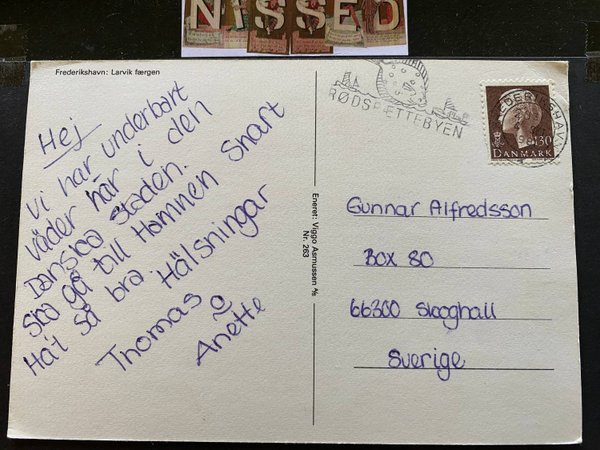 NISSED
Frederikshavn: Larvik færgen
Hej
Vi har underbart
väder här i den
Danska staden. Snart
Ska gå till Hamnen
Ha't så bra. Hälsningar
Thomas o
Anette
Eneret: Viggo Asmussen A/s
Nr. 263
RØDSPÆTTEBYEN
130
DANMARK
Gunnar Alfredsson
BOX 80
66300 Skoghall
Sverige